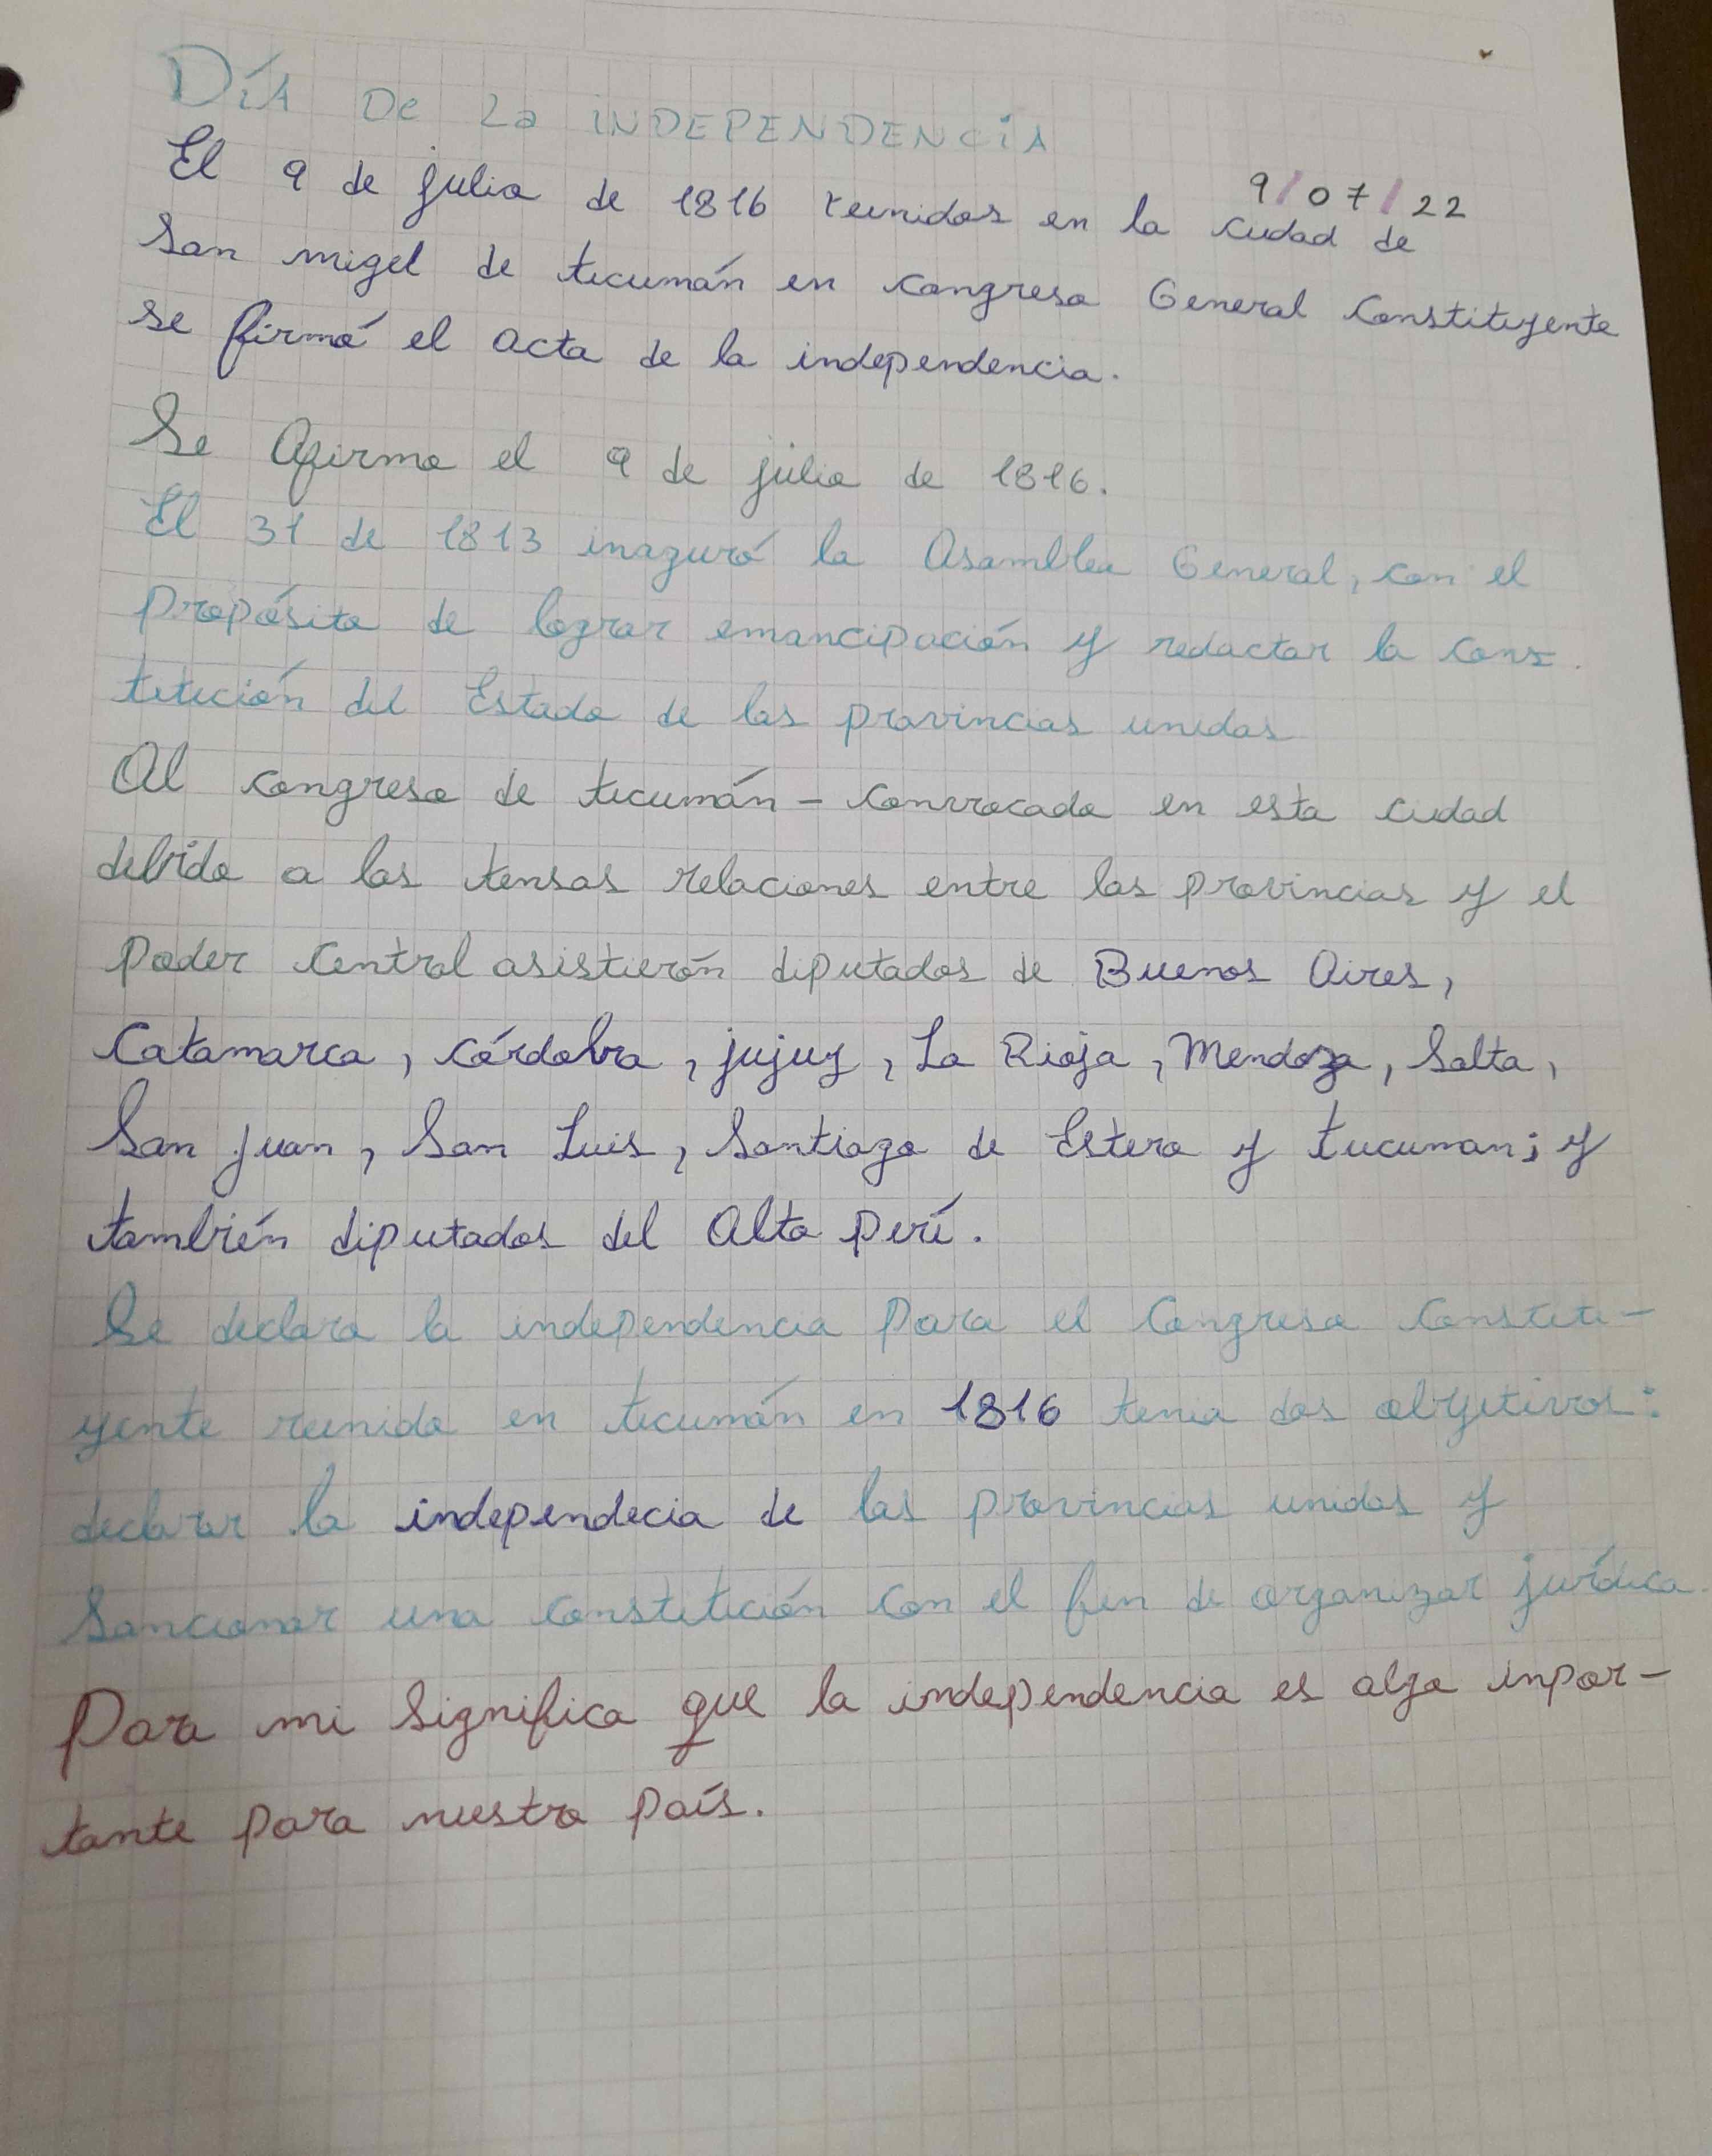 DíA De La iNDEPENDENCiA
9/07/22
El 9 de julio de 1816 reunidos en la ciudad de
San migel de tucumán en congreso General Constituyente
se firmó el acta de la independencia.
Se Afirmo el 9 de julio de 1816.
El 31 de 1813 inaguró la Asamblea General, con el
Propósito de lograr emancipación y redactar la cons-
titución del Estado de las provincias unidas
Al congreso de tucumán - convocado en esta ciudad
debido a las tensas relaciones entre las provincias y el
Poder Central asistierón diputados de Buenos Aires,
Catamarca, córdobra, jujuy, La Rioja, Mendoza, Salta,
San juan, San Luis, Santiago de Estero y tucuman; y
también diputados del Alto perú.
Se declara la independencia para el Congreso constitu-
yente reunido en tucumán en 1816 tenia dos objetivos:
declarar la independecia de las provincias unidas y
Sancionar una constitución con el fin de organizar jurídica.
Para mi significa que la independencia es algo inpor-
tante para nuestro país.